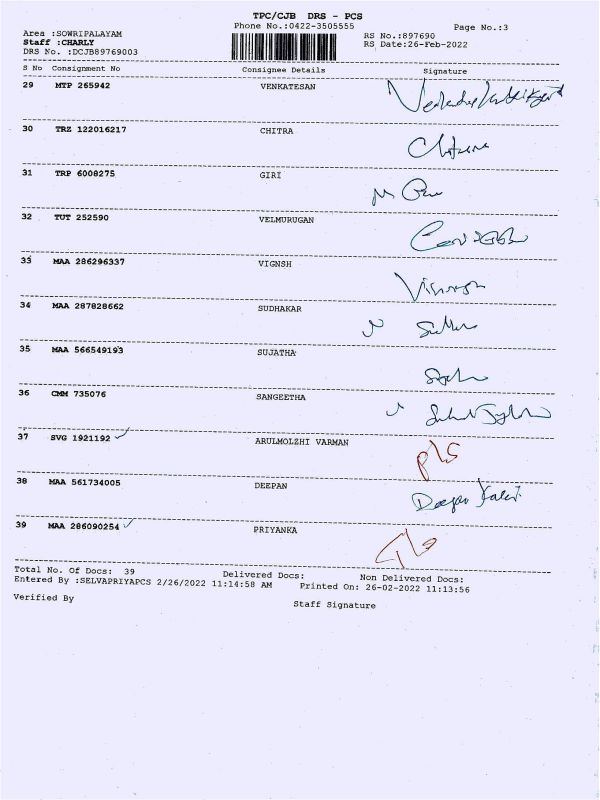 TPC/CJB DRS - PCS
Phone No.:0422-3505555
Page No.:3
Area :SOWRIPALAYAM
Staff :CHARLY
DRS No. :DCJB89769003
RS No.:897690
RS Date:26-Feb-2022
S No Consignment No Consignee Details Signature
29 MTP 265942 VENKATESAN
30 TRZ 122016217 CHITRA Chitra
31 TRP 6008275 GIRI
32 TUT 252590 VELMURUGAN
33 MAA 286296337 VIGNSH
34 MAA 287828662 SUDHAKAR
35 MAA 566549193 SUJATHA
36 CMM 735076 SANGEETHA
37 SVG 1921192 ARULMOLZHI VARMAN
38 MAA 561734005 DEEPAN
39 MAA 286090254 PRIYANKA
Total No. Of Docs: 39 Delivered Docs: Non Delivered Docs:
Entered By :SELVAPRIYAPCS 2/26/2022 11:14:58 AM Printed On: 26-02-2022 11:13:56
Verified By Staff Signature